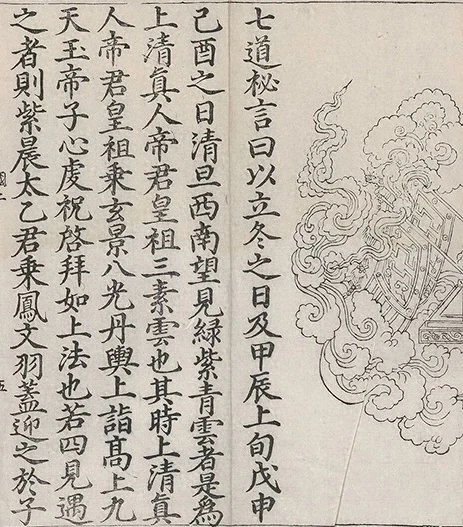 七道秘言曰以立冬之日及甲辰上旬戊申
己酉之日清旦西南望見綠紫青雲者是為
上清真人帝君皇祖三素雲也其時上清真
人帝君皇祖乘玄景八光丹輿上詣高上九
天王帝子心虔祝啓拜如上法也若四見遇
之者則紫晨太乙君乘鳳文羽蓋迎之於子
五